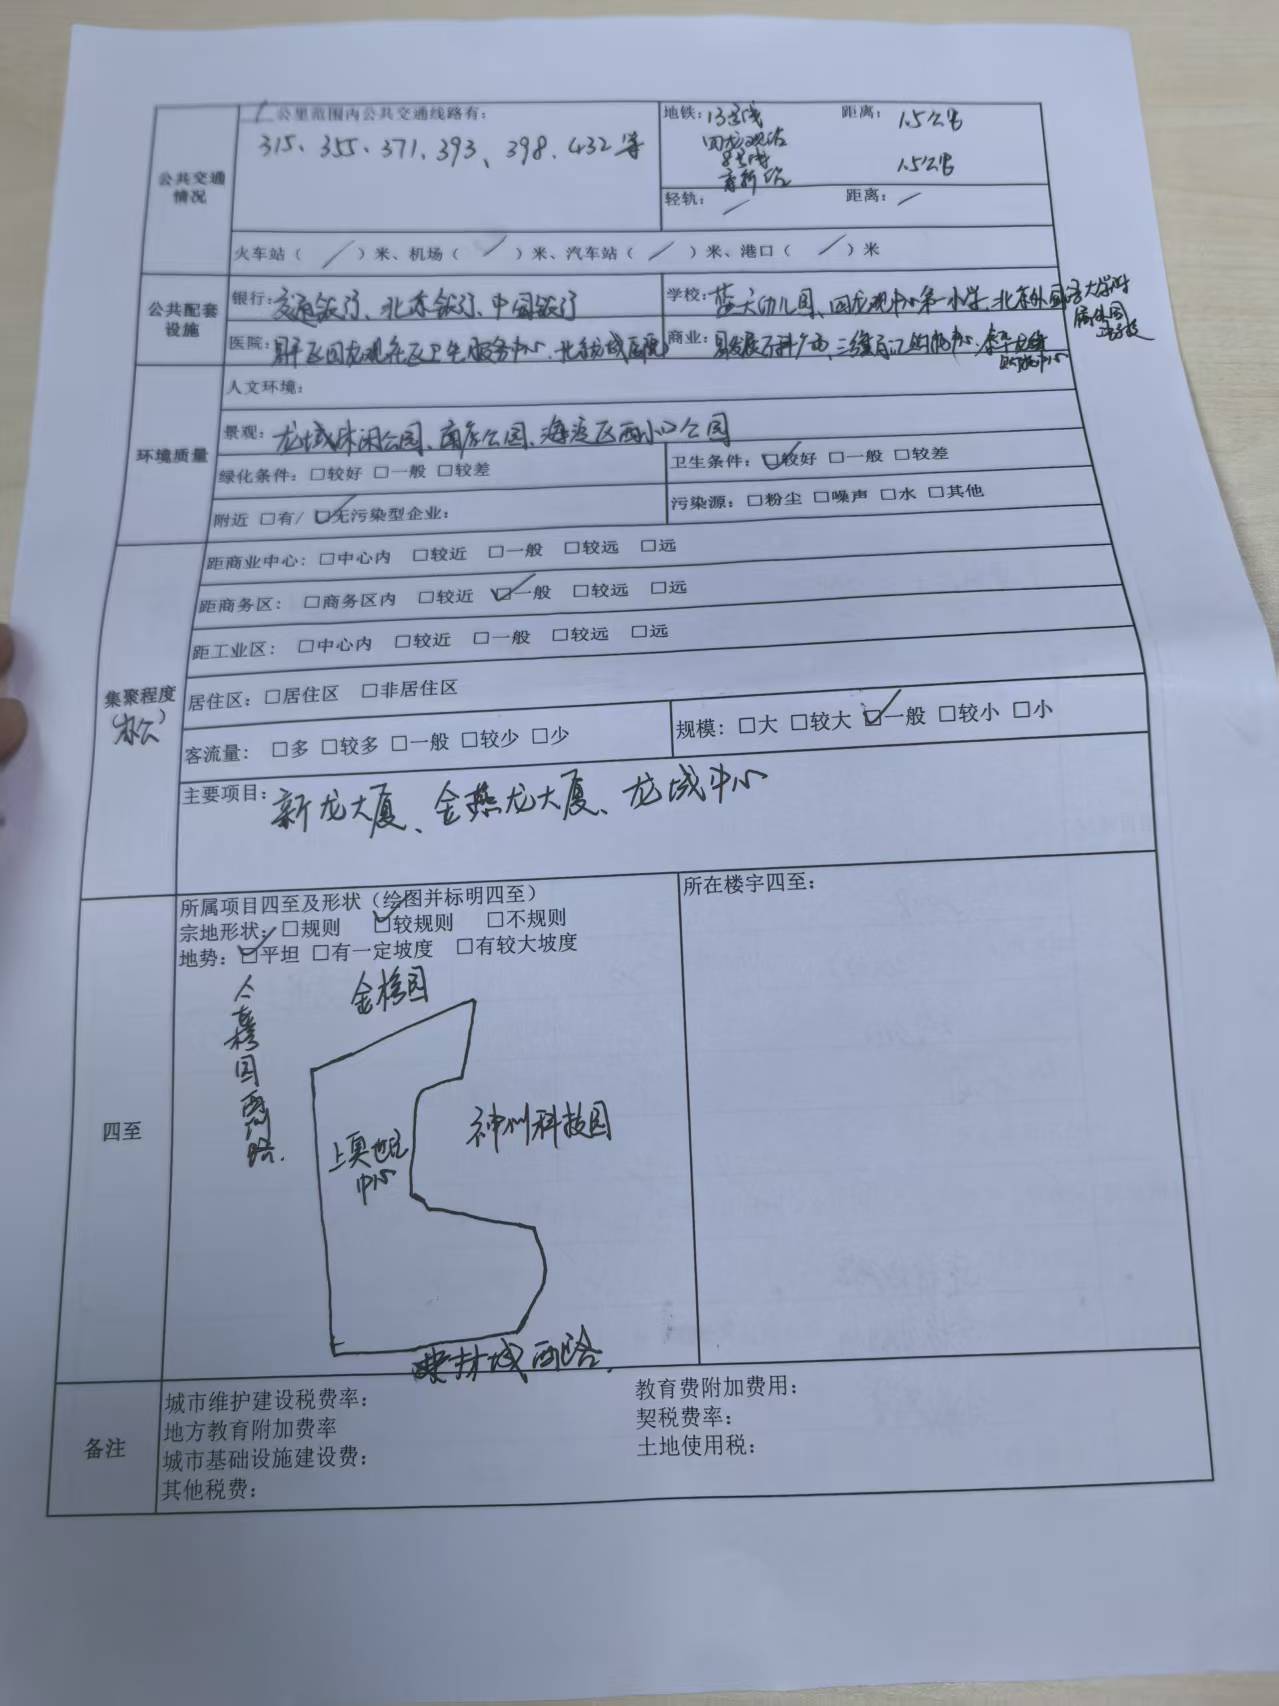 公共交通情况
1 公里范围内公共交通线路有:
315、355、371、393、398、432等
地铁: 13号线 距离: 1.5公里
回龙观站
8号线 1.5公里
育新站
轻轨: / 距离: /
火车站( / )米、机场( / )米、汽车站( / )米、港口( / )米
公共配套设施
银行: 交通银行、北京银行、中国银行
学校: 蓝天幼儿园、回龙观中心第一小学、北京外国语大学附属外国语学校
医院: 昌平区回龙观社区卫生服务中心、北京龙城医院
商业: 易发展百科广场、三维百汇购物中心、
购物中心
环境质量
人文环境:
景观: 龙域休闲公园、南店公园、海淀区西小口公园
绿化条件: □较好 □一般 □较差
卫生条件: ☑较好 □一般 □较差
附近 □有/ ☑无污染型企业:
污染源: □粉尘 □噪声 □水 □其他
集聚程度
(办公)
距商业中心: □中心内 □较近 □一般 □较远 □远
距商务区: □商务区内 □较近 ☑一般 □较远 □远
距工业区: □中心内 □较近 □一般 □较远 □远
居住区: □居住区 □非居住区
客流量: □多 □较多 □一般 □较少 □少
规模: □大 □较大 ☑一般 □较小 □小
主要项目: 新龙大厦、金燕龙大厦、龙域中心
四至
所属项目四至及形状（绘图并标明四至）
宗地形状: □规则 ☑较规则 □不规则
地势: ☑平坦 □有一定坡度 □有较大坡度
所在楼宇四至:
金榜园
金榜园西侧路.
上奥世纪
中心
神州科技园
建材城西路.
备注
城市维护建设税费率:
教育费附加费用:
地方教育附加费率
契税费率:
城市基础设施建设费:
土地使用税:
其他税费: